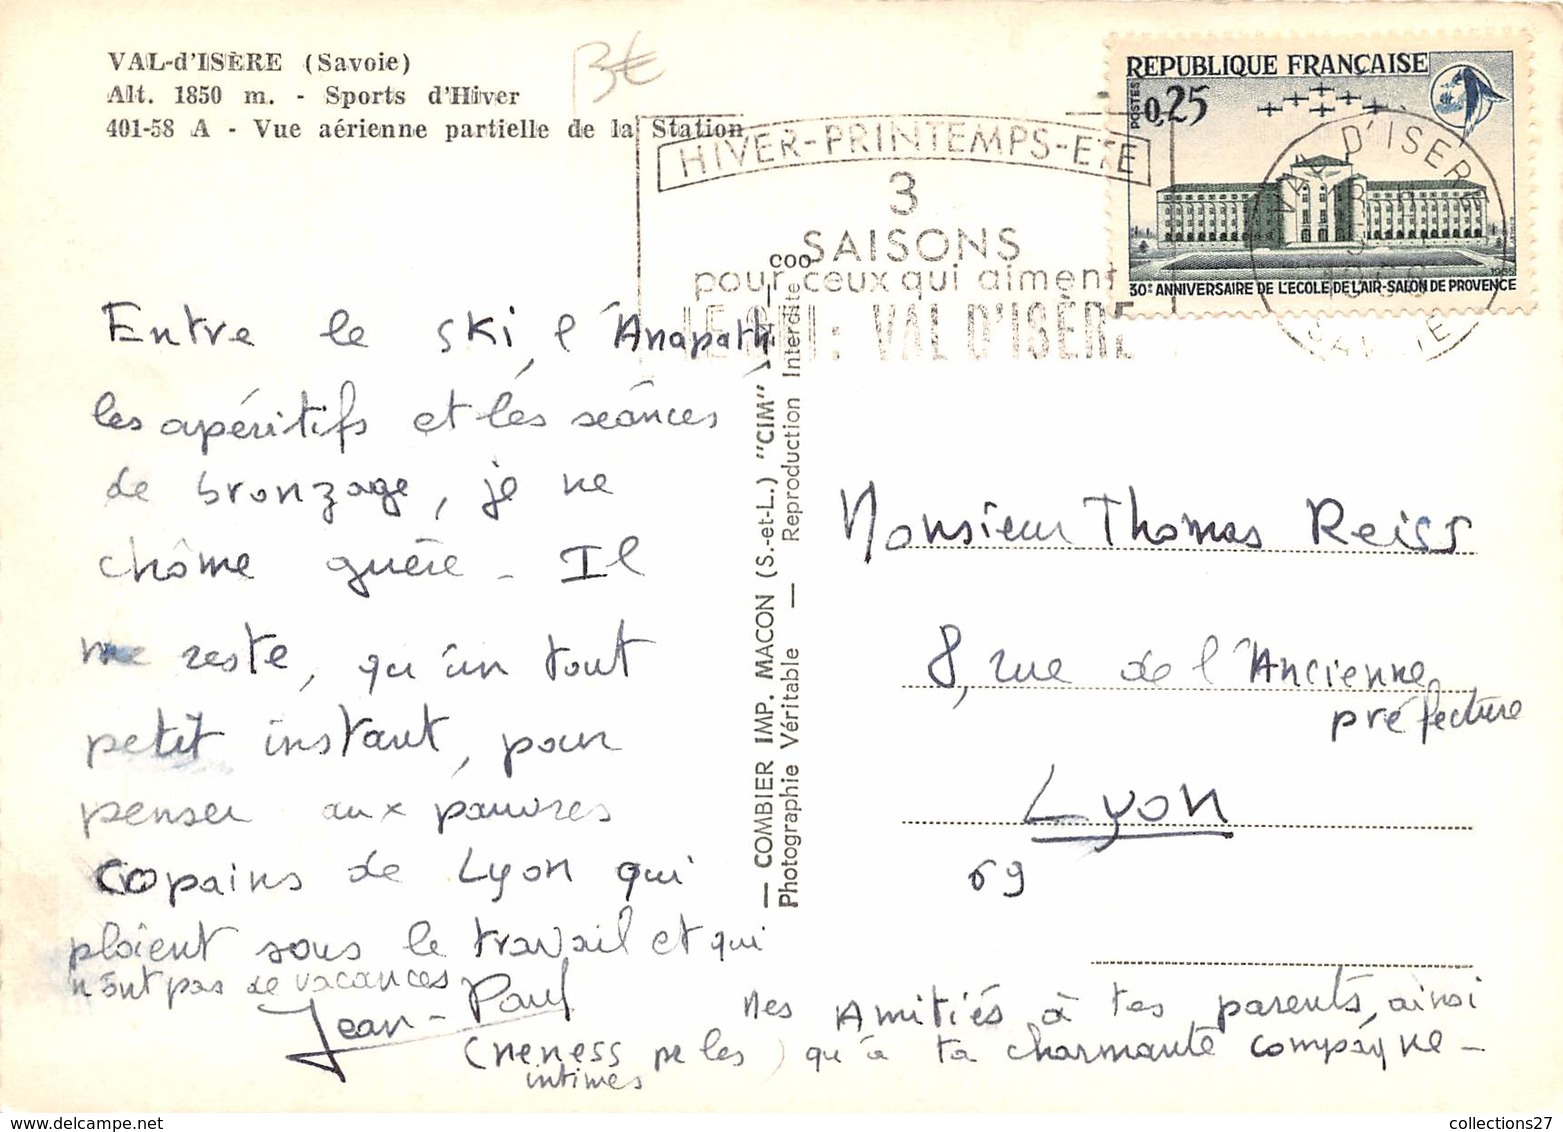 VAL-d'ISÈRE (Savoie)
Alt. 1850 m. - Sports d'Hiver
401-58 A - Vue aérienne partielle de la Station
B€
HIVER-PRINTEMPS-ETE
3
SAISONS
pour ceux qui aiment
LE SKI : VAL D'ISÈRE
REPUBLIQUE FRANÇAISE
POSTES
0,25
1965
30e ANNIVERSAIRE DE L'ECOLE DE L'AIR-SALON DE PROVENCE
VAL D'ISÈRE
SAVOIE
Entre le ski, l'Anapath
les apéritifs et les séances
de bronzage, je ne
chôme guère - Il
me reste, qu'un tout
petit instant, pour
penser aux pauvres
copains de Lyon qui
ploient sous le travail et qui
n'ont pas de vacances
Jean-Paul
(neness pr les)
intimes
Mes Amitiés à tes parents, ainsi
qu'à ta charmante compagne -
COO
— COMBIER IMP. MACON (S.-et-L.) "CIM"
Photographie Véritable — Reproduction Interdite
Monsieur Thomas Reiss
8, rue de l'Ancienne
préfecture
Lyon
69
collections27